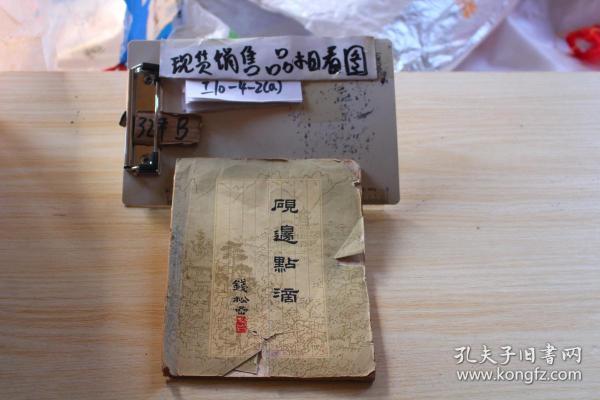 现货销售品相看图
I10-4-2(a)
132# B
砚邊點滴
錢松喦
孔夫子旧书网
www.kongfz.com